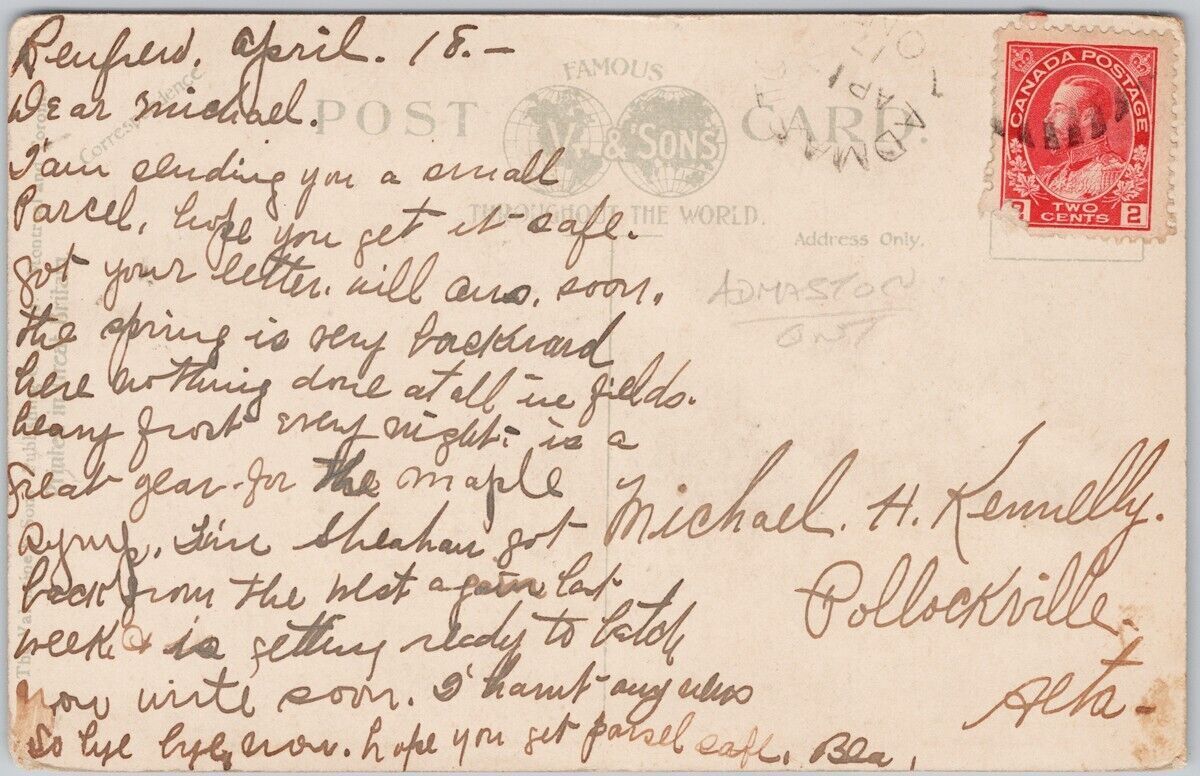 Renfrew, April. 18.-
Dear Michael.
I'am sending you a small
Parcel, hope you get it safe.
got your letter. will ans. soon.
the spring is very backward
here nothing done at all in fields.
heavy frost every night. is a
Great year for the maple
syrup. Jim Sheahan got
back from the west again last
week & is getting ready to batch
now write soon. I hav'nt any news
So bye bye, now. hope you get parsel safe. Bea,
Correspondence
FAMOUS
POST CARD.
V. & 'SONS'
THROUGHOUT THE WORLD.
Address Only.
ADMASTON
ONT
ADMAS
AP 1
ONT
CANADA POSTAGE
2 TWO CENTS 2
Michael. H. Kennelly.
Pollockville.
Alta-